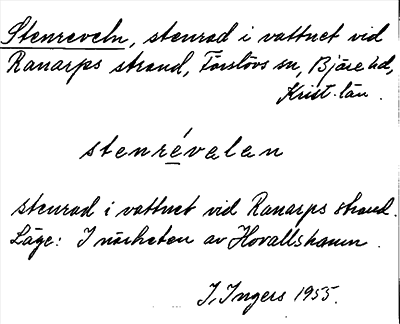 Stenreveln, stenrad i vattnet vid
Ranarps strand, Förslövs sn, Bjäre hd,
Krist. län.
stenrévalan
stenrad i vattnet vid Ranarps strand.
Läge: I närheten av Hovallshamn.
I. Ingers 1955.